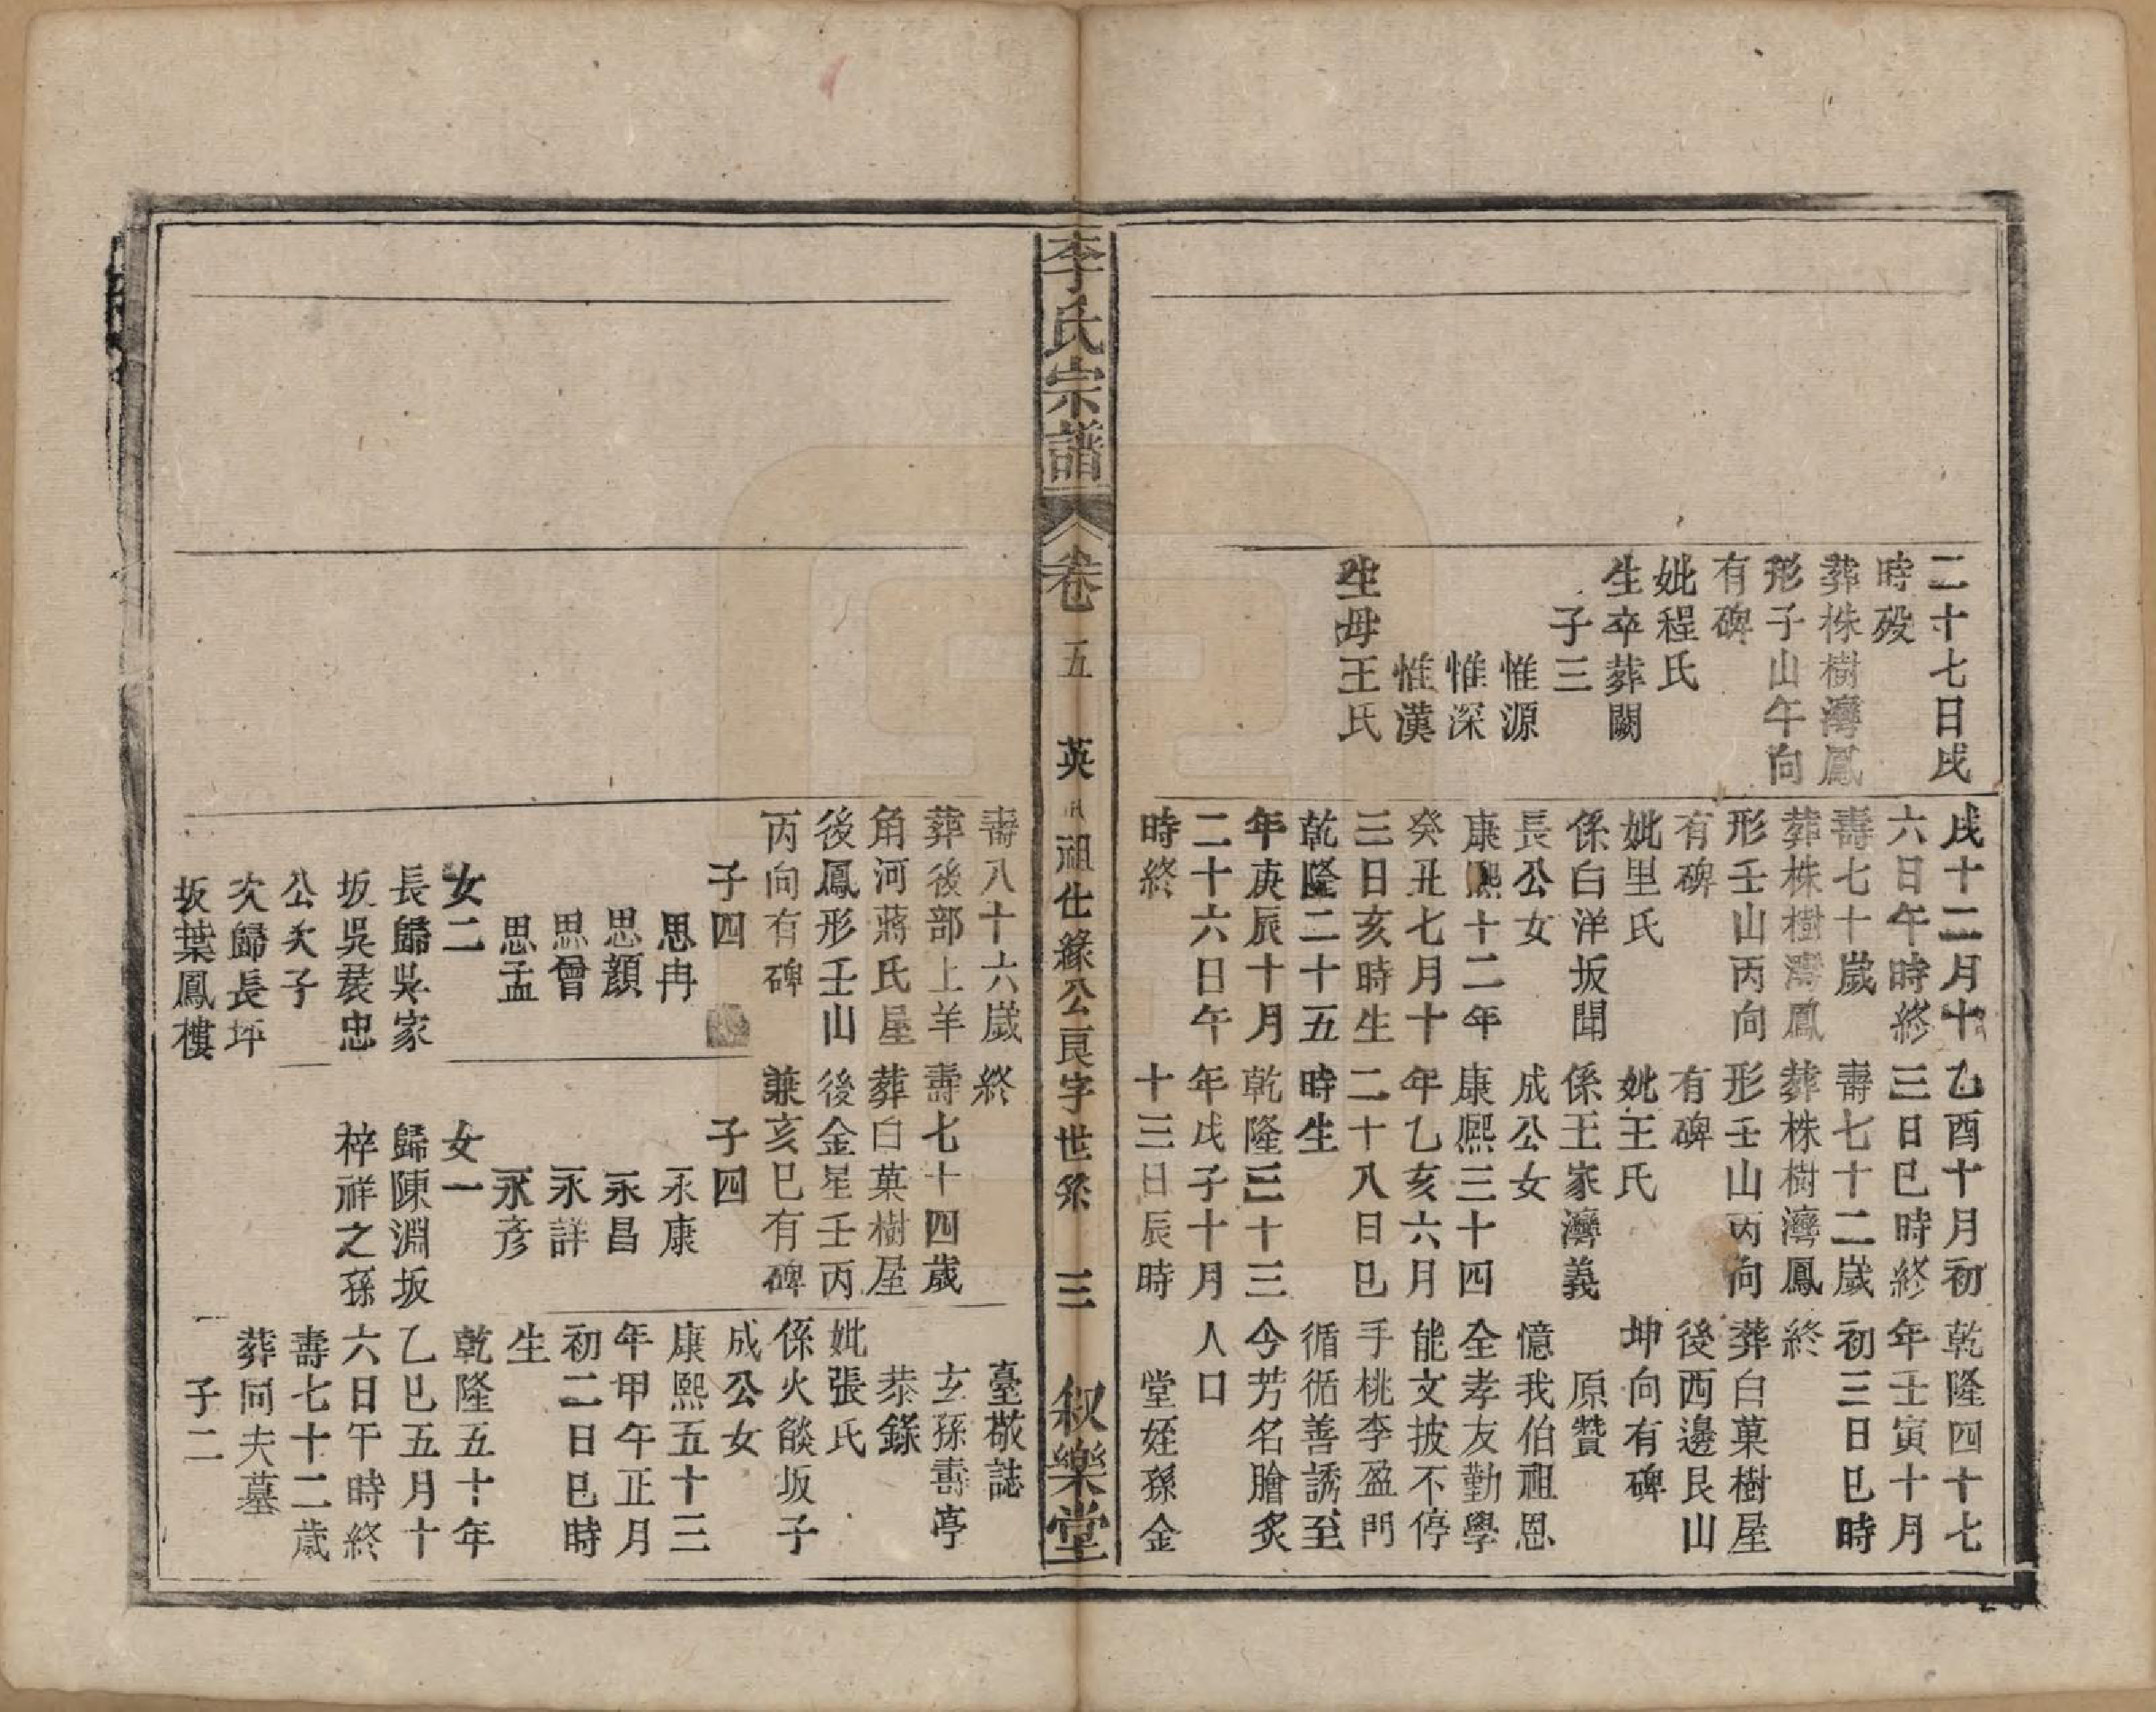 二十七日戌
時歿
葬株樹灣鳳
形子山午向
有碑
妣程氏
生卒葬闕
子三
惟源
惟深
惟漢
生母王氏
戌十二月十
六日午時終
壽七十歲
葬株樹灣鳳
形壬山丙向
有碑
妣里氏
係白洋坂聞
長公女
康熙十二年
癸丑七月十
三日亥時生
乾隆二十五
年庚辰十月
二十六日午
時終
乙酉十月初
三日巳時終
壽七十二歲
葬株樹灣鳳
形壬山丙向
有碑
妣王氏
係王家灣義
成公女
康熙三十四
年乙亥六月
二十八日巳
時生
乾隆三十三
年戊子十月
十三日辰時
乾隆四十七
年壬寅十月
初三日巳時
終
葬白菓樹屋
後西邊艮山
坤向有碑
原贊
憶我伯祖恩
全孝友勤學
能文披不停
手桃李盈門
循循善誘至
今芳名膾炙
人口
堂姪孫金
李氏宗譜
卷五
英 祖仕緣公良字世系
三
叙樂堂
壽八十六歲
葬後部上羊
角河蔣氏屋
後鳳形壬山
丙向有碑
子四
思冉
思顏
思曾
思孟
女二
長歸吳家
坂吳裝忠
公次子
次歸長坪
坂葉鳳樓
終
壽七十四歲
葬白菓樹屋
後金星壬丙
兼亥巳有碑
子四
永康
永昌
永詳
永彥
女一
歸陳淵坂
梓祥之孫
臺敬誌
玄孫壽亭
恭錄
妣張氏
係火燄坂子
成公女
康熙五十三
年甲午正月
初二日巳時
生
乾隆五十年
乙巳五月十
六日午時終
壽七十二歲
葬同夫墓
子二